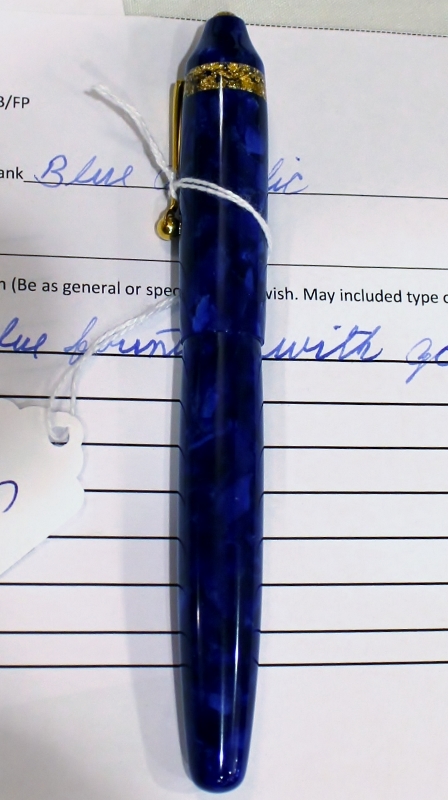 B/FP
ank Blue lic
n (Be as general or spec wish. May included type o
lue with go